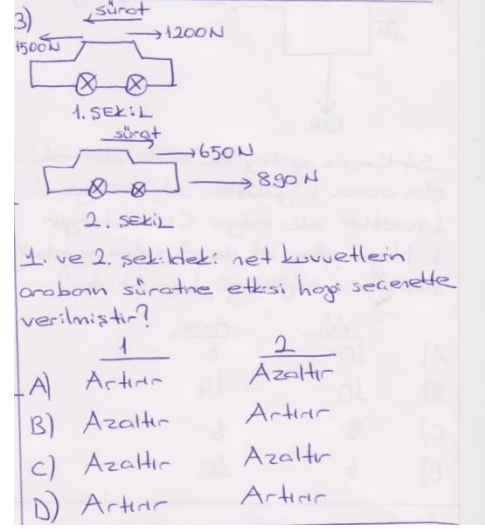 3)
sürat
1500N
1200N
1. ŞEKİL
sürat
650N
890N
2. ŞEKİL
1. ve 2. şekildeki net kuvvetlerin
arabanın süratne etkisi hangi seçenekte
verilmiştir?
1 2
A) Artırır Azaltır
B) Azaltır Artırır
C) Azaltır Azaltır
D) Artırır Artırır